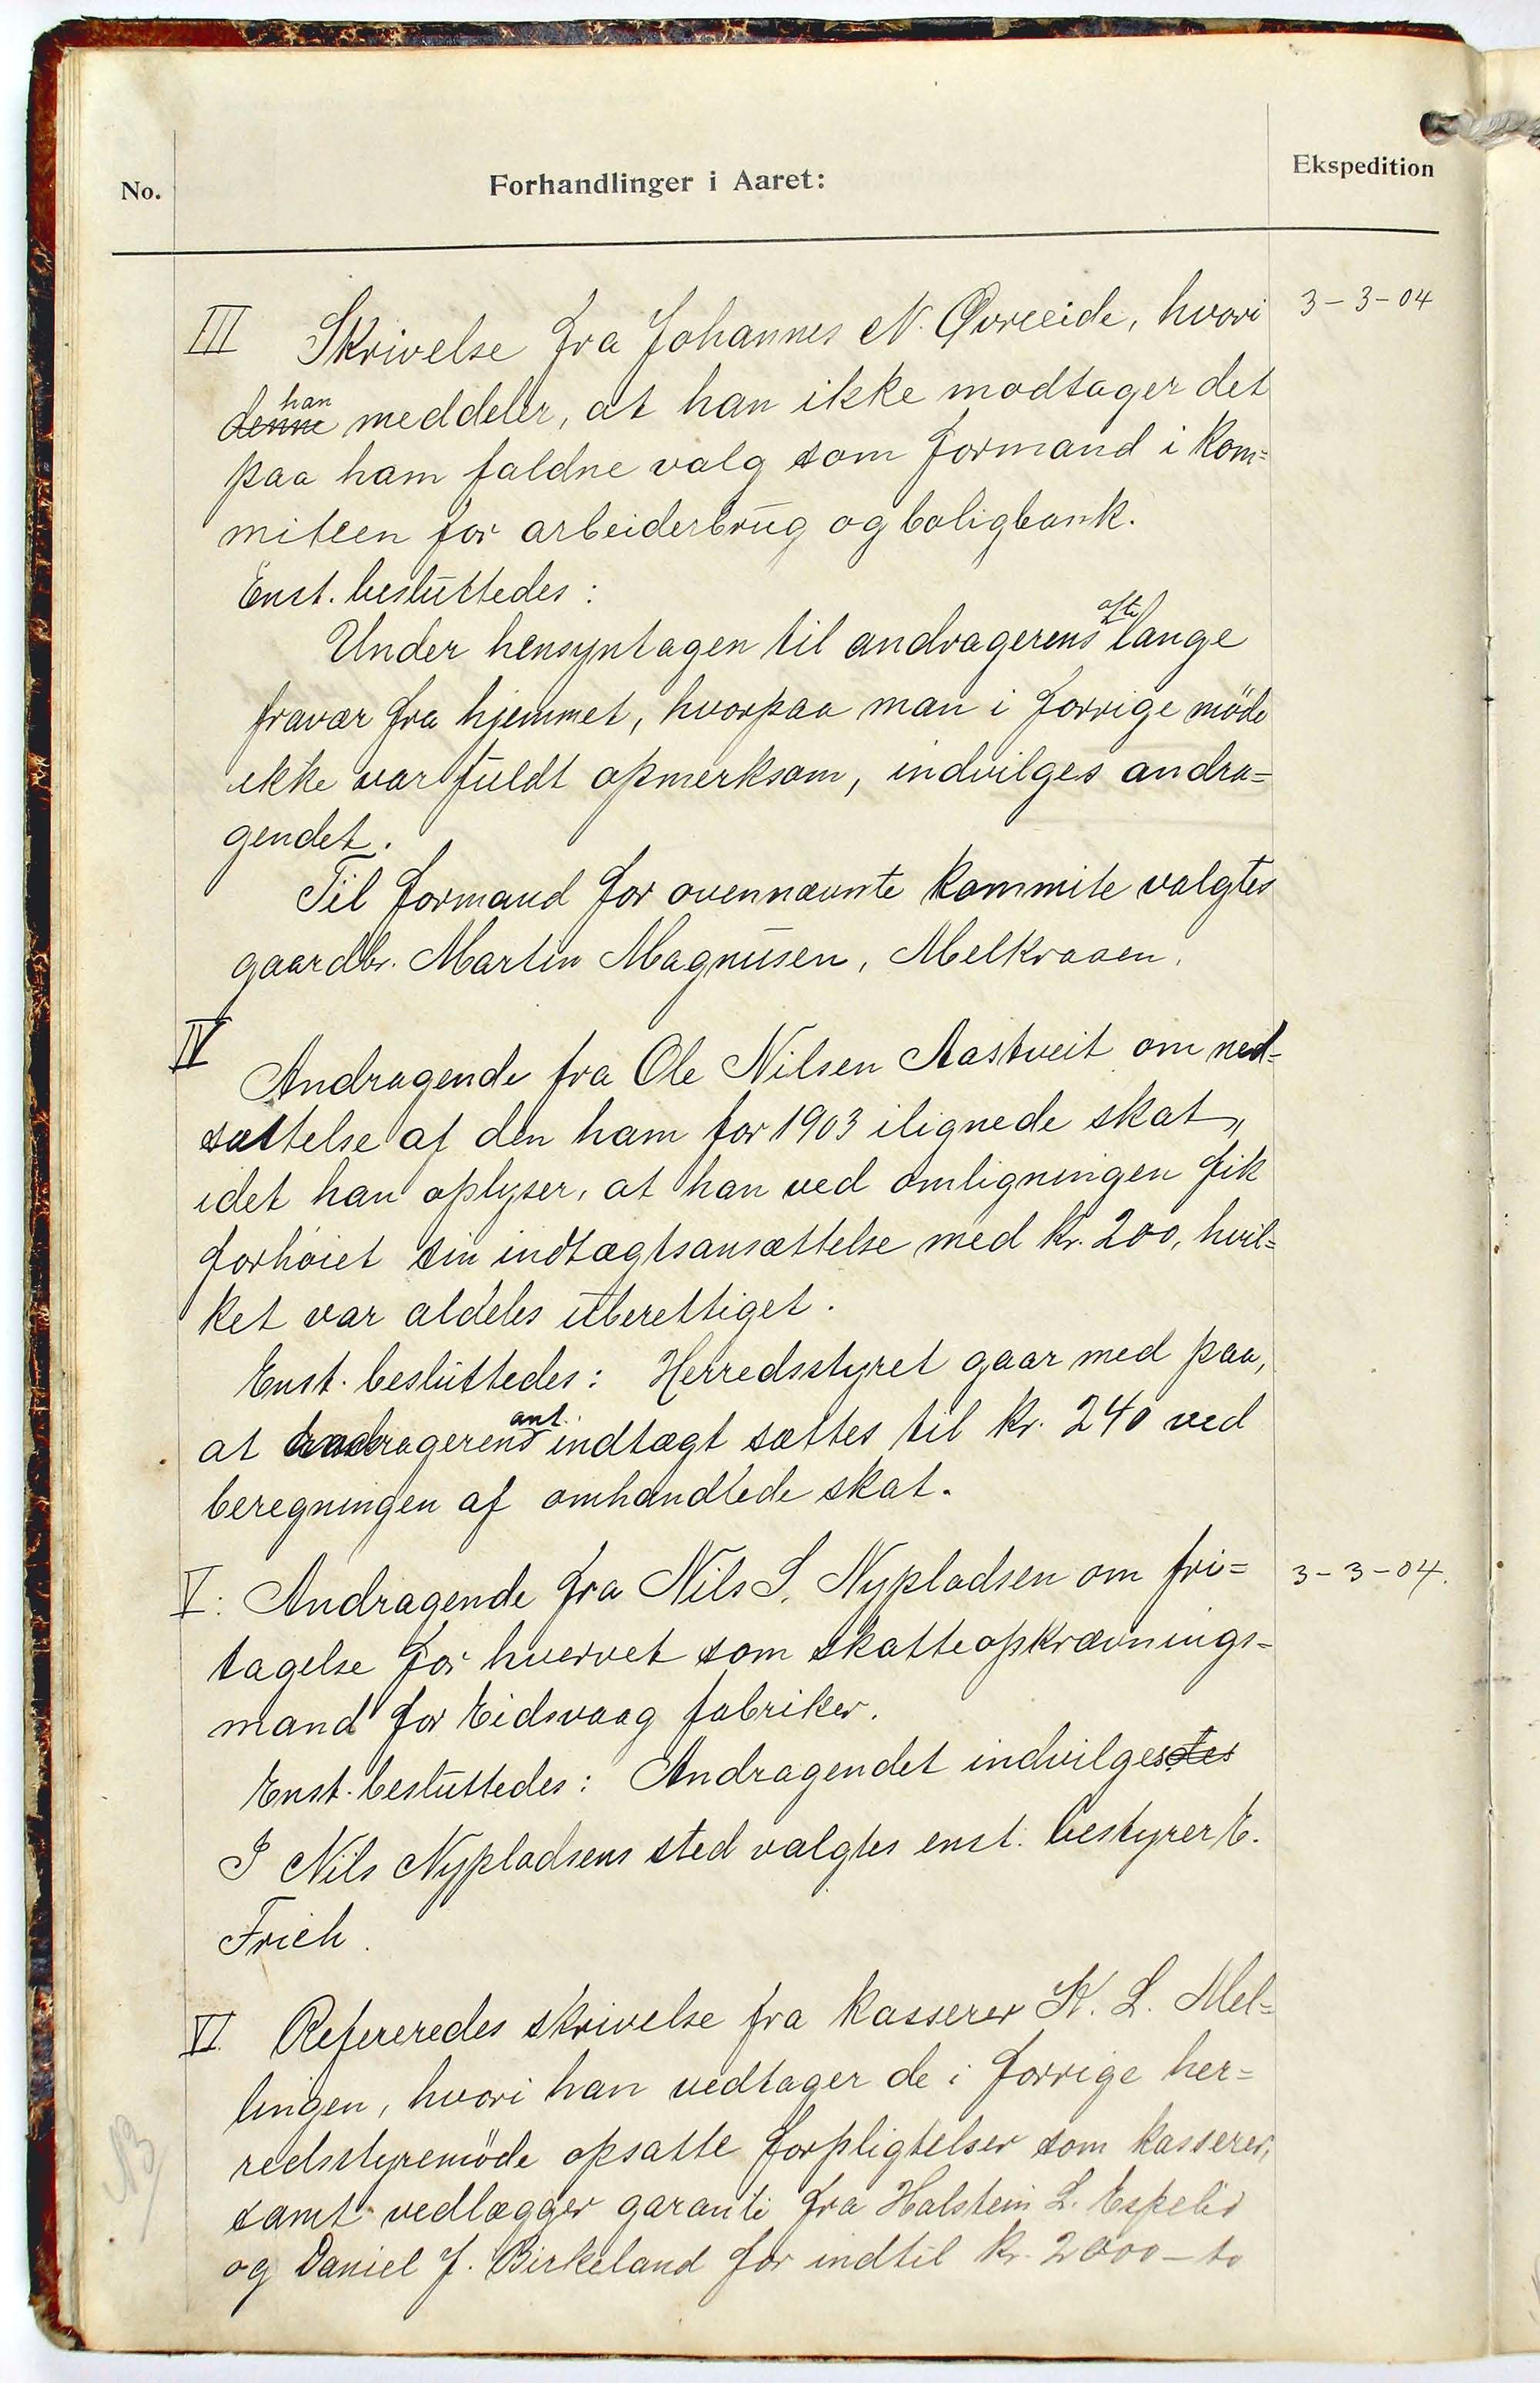 No.
Forhandlinger i Aaret:
Ekspedition
III Skrivelse fra Johannes N. Øvreeide, hvori
3-3-04
han
denne meddeler, at han ikke modtager det
paa ham faldne valg som formand i kom=
miteen for arbeiderbrug og boligbank.
Enst. besluttedes:
ofte
Under hensyntagen til andragerens lange
fravær fra hjemmet, hvorpaa man i forrige möde
ikke var fuldt opmerksom, indvilges andra=
gendet.
Til formand for ovennævnte kommite valgtes
gaardbr. Martin Magnusen, Melkraaen.
IV
Andragende fra Ole Nilsen Aastveit om ned=
sættelse af den ham for 1903 ilignede skat,
idet han oplyser, at han ved omligningen fik
forhöiet sin indtægtsansættelse med kr. 200, hvil=
ket var aldeles uberettiget.
Enst. besluttedes: Herredsstyret gaar med paa,
ant.
at andragerens indtægt sættes til kr. 240 ved
beregningen af omhandlede skat.
V: Andragende fra Nils S. Nypladsen om fri=
3-3-04.
tagelse for hvervet som skatteopkrævnings=
mand for Eidsvaag fabriker.
Enst. besluttedes: Andragendet indvilgesdes
I Nils Nypladsens sted valgtes enst. bestyrer E.
Frich.
VI. Refereredes skrivelse fra kasserer K. L. Mel=
lingen, hvori han vedtager de i forrige her=
redsstyremöde opsatte forpligtelser som kasserer,
NB
samt vedlægger garanti fra Halstein L. Espelid
og Daniel J. Birkeland for indtil kr. 2000 – to